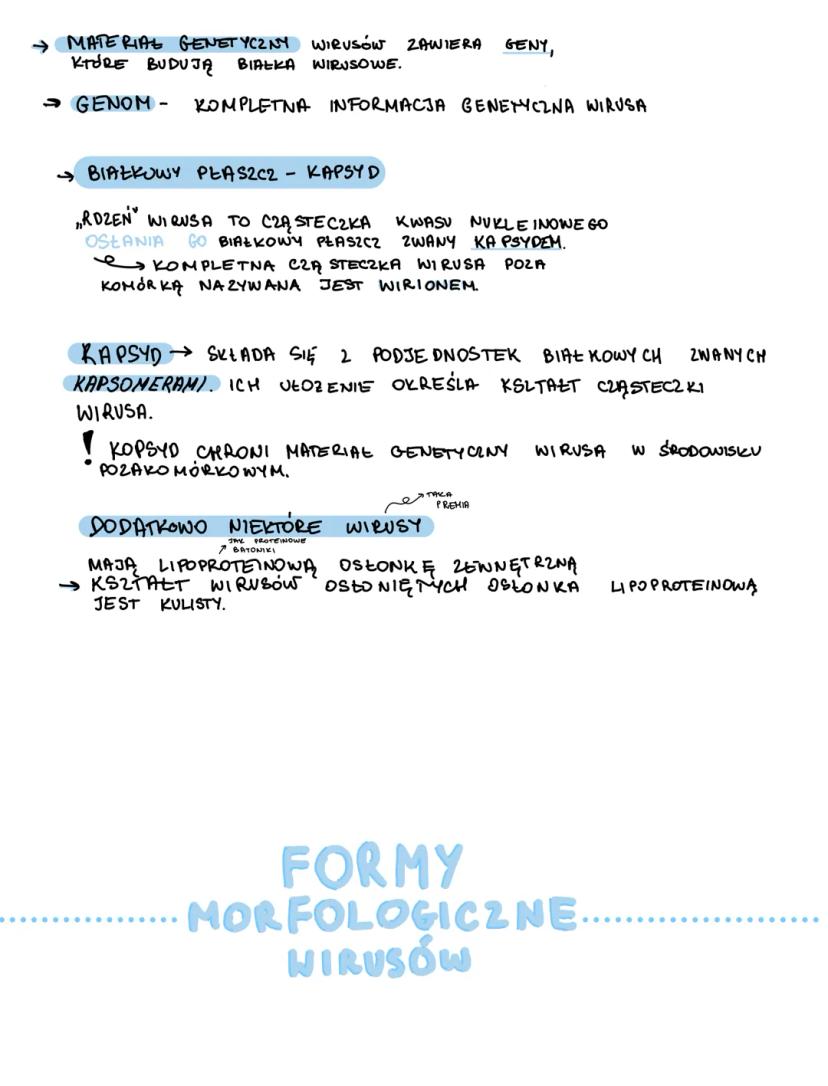 → MATERIAŁ GENETYCZNY WIRUSÓW ZAWIERA GENY,
KTÓRE BUDUJĄ BIAŁKA WIRUSOWE.
→ GENOM - KOMPLETNA INFORMACJA GENETYCZNA WIRUSA
→ BIAŁKOWY PŁASZCZ - KAPSYD
„RDZEŃ" WIRUSA TO CZĄSTECZKA KWASU NUKLEINOWEGO
OSŁANIA GO BIAŁKOWY PŁASZCZ ZWANY KAPSYDEM.
→ KOMPLETNA CZĄSTECZKA WIRUSA POZA
KOMÓRKĄ NAZYWANA JEST WIRIONEM.
KAPSYD → SKŁADA SIĘ Z PODJEDNOSTEK BIAŁKOWYCH ZWANYCH
KAPSOMERAMI. ICH UŁOŻENIE OKREŚLA KSZTAŁT CZĄSTECZKI
WIRUSA.
! KOPSYD CHRONI MATERIAŁ GENETYCZNY WIRUSA W ŚRODOWISKU
POZAKOMÓRKOWYM.
→ TAKA
PREMIA
DODATKOWO NIEKTÓRE WIRUSY
JAK PROTEINOWE
↗ BATONIKI
MAJĄ LIPOPROTEINOWĄ OSŁONKĘ ZEWNĘTRZNĄ
→ KSZTAŁT WIRUSÓW OSŁONIĘTYCH OSŁONKA LIPOPROTEINOWĄ
JEST KULISTY.
FORMY
MORFOLOGICZNE
WIRUSÓW